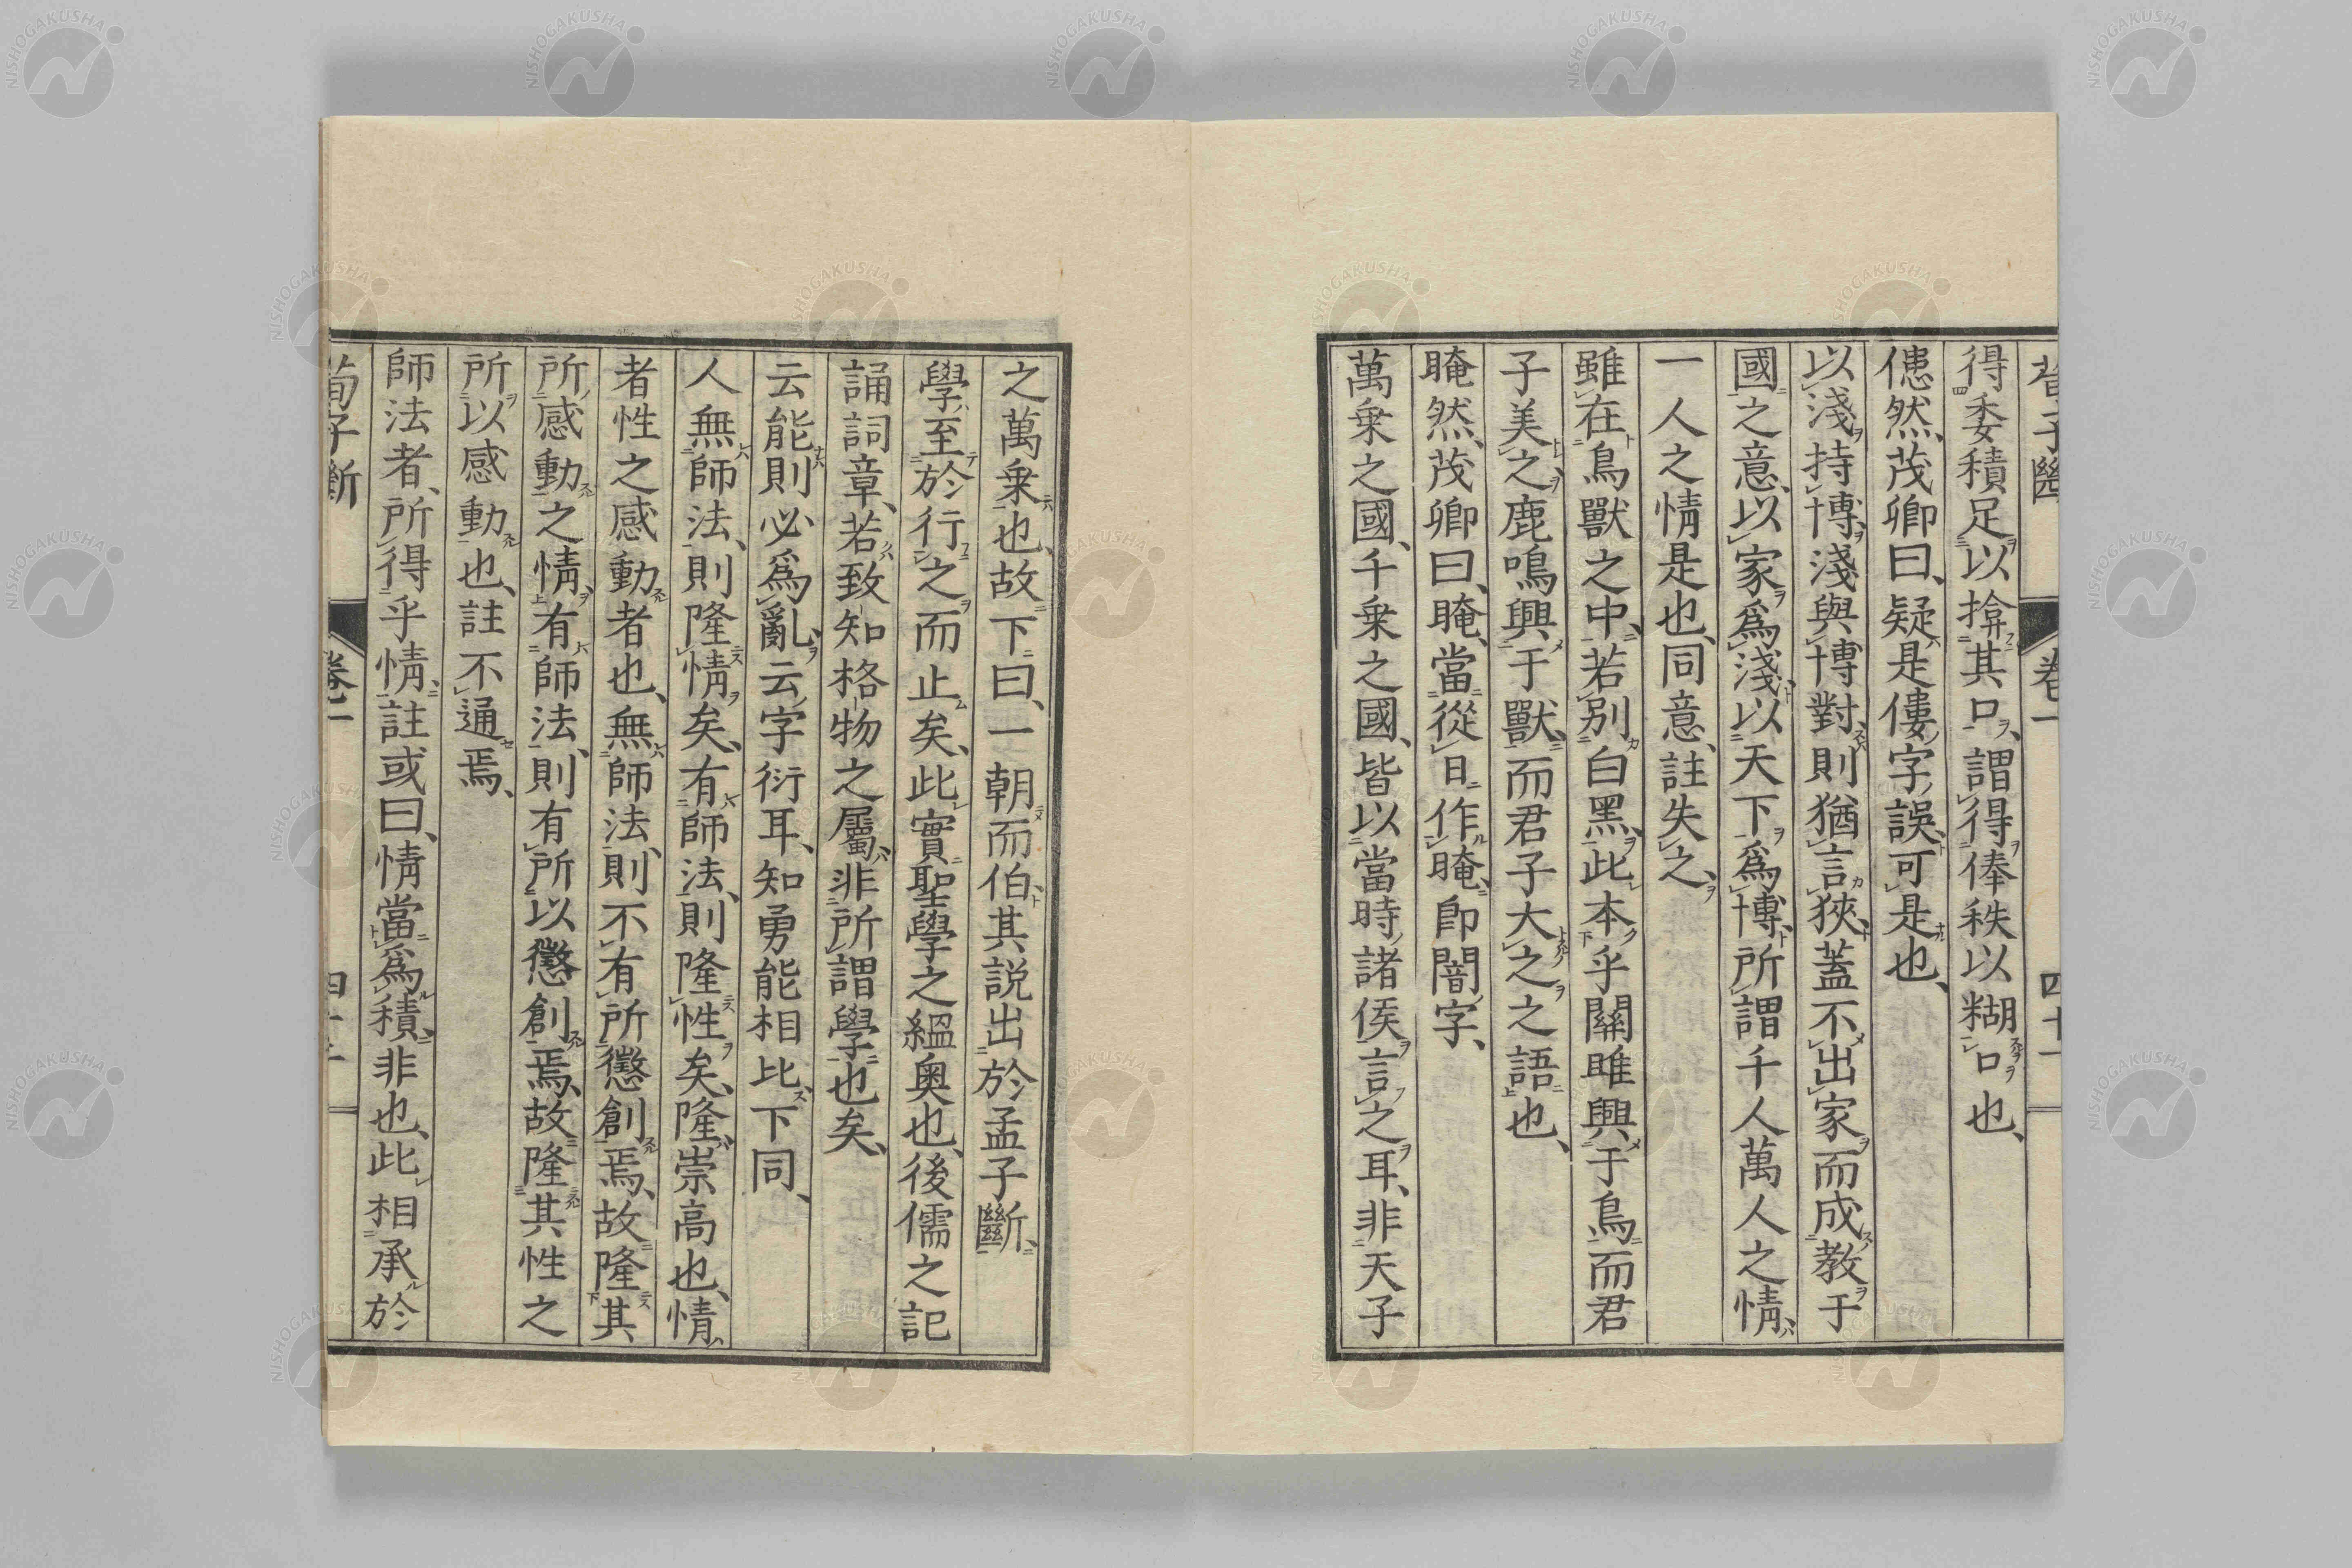 荀子斷
卷一
四十一
得委積足以揜其口、謂得俸秩以糊口也、
僡然、茂卿曰、疑是僂字誤、可是也、
以淺持博、淺與博對、則猶言狹、蓋不出家而成教于
國之意、以家爲淺、以天下爲博、所謂千人萬人之情、
一人之情是也、同意、註失之、
雖在鳥獸之中、若別白黑、此本乎關雎興于鳥而君
子美之、鹿鳴興于獸、而君子大之之語也、
晻然、茂卿曰、晻、當從日作晻、卽闇字、
萬乗之國、千乗之國、皆以當時諸侯言之耳、非天子
之萬乗也、故下曰、一朝而伯、其説出於孟子斷、
學至於行之而止矣、此實聖學之縕奥也、後儒之記
誦詞章、若致知格物之屬、非所謂學也矣、
云能則必爲亂、云字衍耳、知勇能相比、下同、
人無師法、則隆情矣、有師法、則隆性矣、隆崇高也、情
者性之感動者也、無師法、則不有所懲創焉、故隆其
所感動之情、有師法、則有所以懲創焉、故隆其性之
所以感動也、註不通焉、
師法者、所得乎情、註或曰、情當爲積、非也、此相承於
荀子斷
卷一
NISHOGAKUSHA